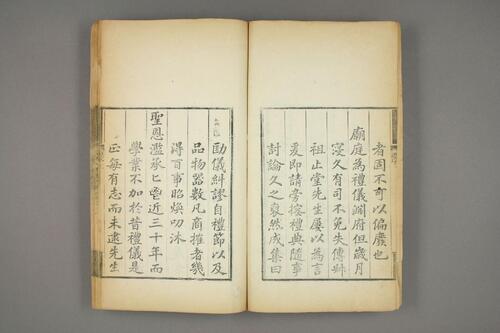 者固不可以偏廢也
廟庭為禮儀淵府但歲月
寖久有司不免失傳
祖止堂先生屢以為言
爰即請旁據禮典隨事
討論久之裒然成集曰
勘儀糾謬自禮節以及
品物器數凡商搉者幾
得百事昭煥叨沐
聖恩濫承匕鬯近三十年而
學業不加於昔禮儀是
正每有志而未逮先生